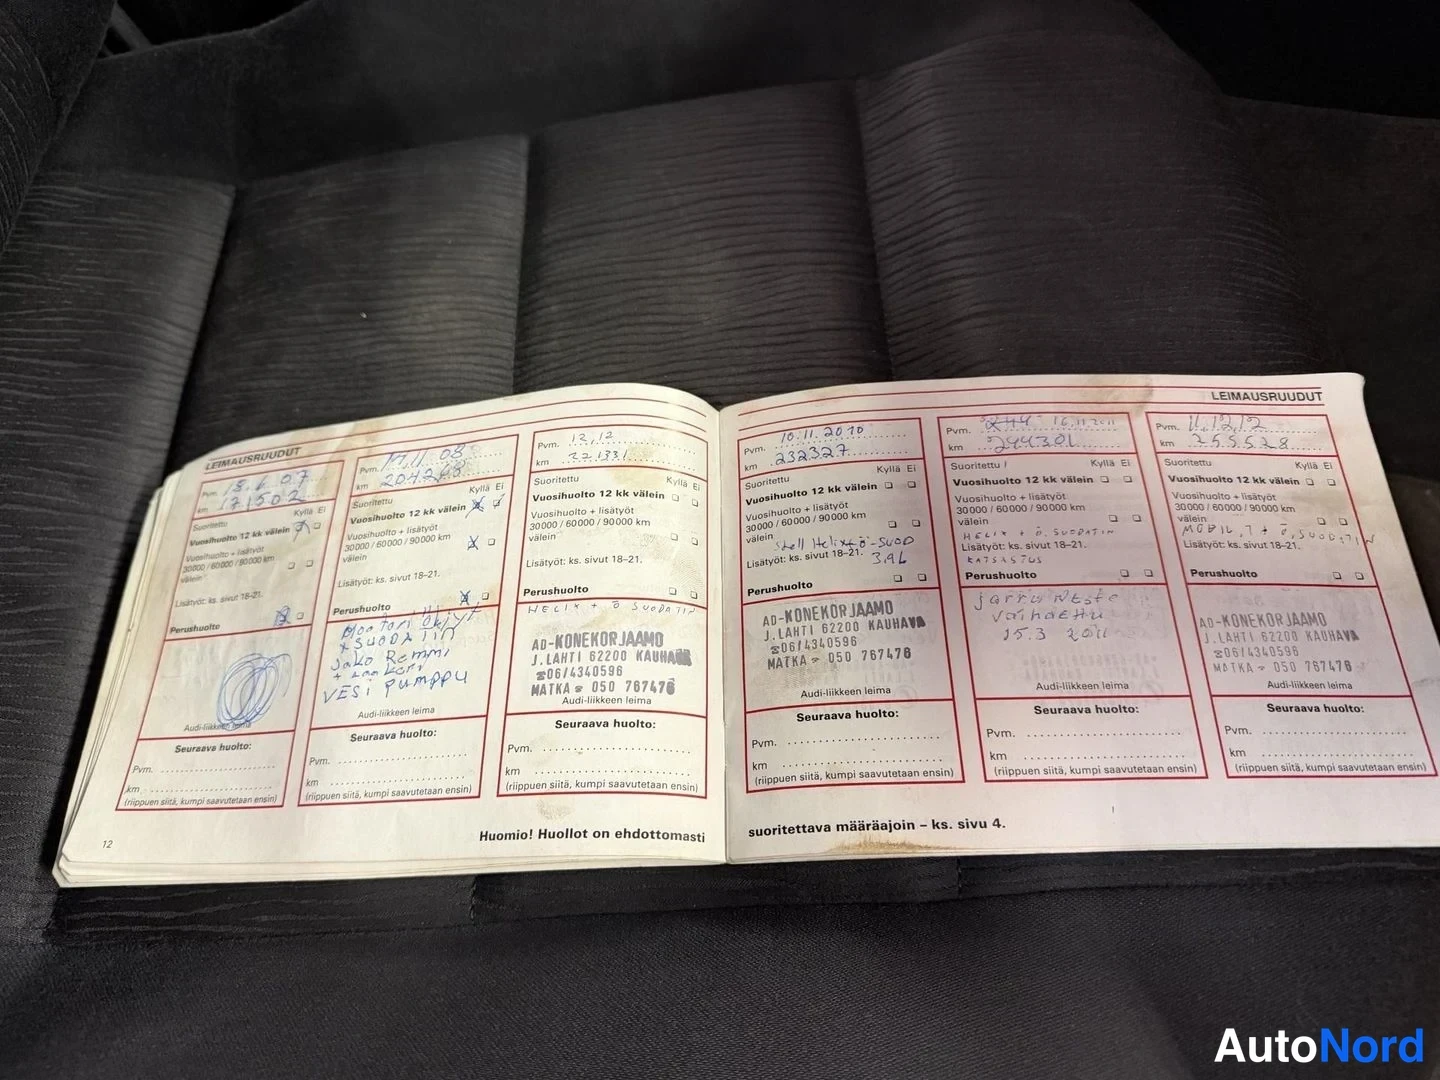 LEIMAUSRUUDUT
Pvm. 18.6.07
km 171502
Suoritettu Kyllä Ei
Vuosihuolto 12 kk välein
Vuosihuolto + lisätyöt
30000 / 60000 / 90000 km
välein
Lisätyöt: ks. sivut 18–21.
Perushuolto
Audi-liikkeen leima
Seuraava huolto:
Pvm.
km
(riippuen siitä, kumpi saavutetaan ensin)
Pvm. 17.11.08
km 204268
Suoritettu Kyllä Ei
Vuosihuolto 12 kk välein
Vuosihuolto + lisätyöt
30000 / 60000 / 90000 km
välein
Lisätyöt: ks. sivut 18–21.
Perushuolto
Moottori öljyt
+ SUODATIN
Jako Remmi
VESI PUMPPU
Audi-liikkeen leima
Seuraava huolto:
Pvm.
km
(riippuen siitä, kumpi saavutetaan ensin)
Pvm. 12,12
km 221331
Suoritettu Kyllä Ei
Vuosihuolto 12 kk välein
Vuosihuolto + lisätyöt
30000 / 60000 / 90000 km
välein
Lisätyöt: ks. sivut 18–21.
Perushuolto
HELIX + ö SUODATIN
AD-KONEKORJAAMO
J.LAHTI 62200 KAUHAVA
☎06/4340596
MATKA ☎ 050 767476
Audi-liikkeen leima
Seuraava huolto:
Pvm.
km
(riippuen siitä, kumpi saavutetaan ensin)
12
Huomio! Huollot on ehdottomasti
LEIMAUSRUUDUT
Pvm. 10.11.2010
km 232327
Suoritettu Kyllä Ei
Vuosihuolto 12 kk välein
Vuosihuolto + lisätyöt
30000 / 60000 / 90000 km
välein
Shell Helix+ö-SUOD
Lisätyöt: ks. sivut 18–21. 3.9L
Perushuolto
AD-KONEKORJAAMO
J.LAHTI 62200 KAUHAVA
☎06/4340596
MATKA ☎ 050 767476
Audi-liikkeen leima
Seuraava huolto:
Pvm.
km
(riippuen siitä, kumpi saavutetaan ensin)
Pvm. 16.11.2011
km 244301
Suoritettu Kyllä Ei
Vuosihuolto 12 kk välein
Vuosihuolto + lisätyöt
30000 / 60000 / 90000 km
välein
HELIX + ö. SUODATIN
Lisätyöt: ks. sivut 18–21.
KATSASTUS
Perushuolto
jarruneste
vaihdettu
15.3 2011
Audi-liikkeen leima
Seuraava huolto:
Pvm.
km
(riippuen siitä, kumpi saavutetaan ensin)
Pvm. 11.12.12
km 255528
Suoritettu Kyllä Ei
Vuosihuolto 12 kk välein
Vuosihuolto + lisätyöt
30000 / 60000 / 90000 km
välein
MOBIL 1 + ö, SUODATIN
Lisätyöt: ks. sivut 18–21.
Perushuolto
AD-KONEKORJAAMO
J.LAHTI 62200 KAUHAVA
☎06/4340596
MATKA ☎ 050 767476
Audi-liikkeen leima
Seuraava huolto:
Pvm.
km
(riippuen siitä, kumpi saavutetaan ensin)
suoritettava määräajoin – ks. sivu 4.
AutoNord